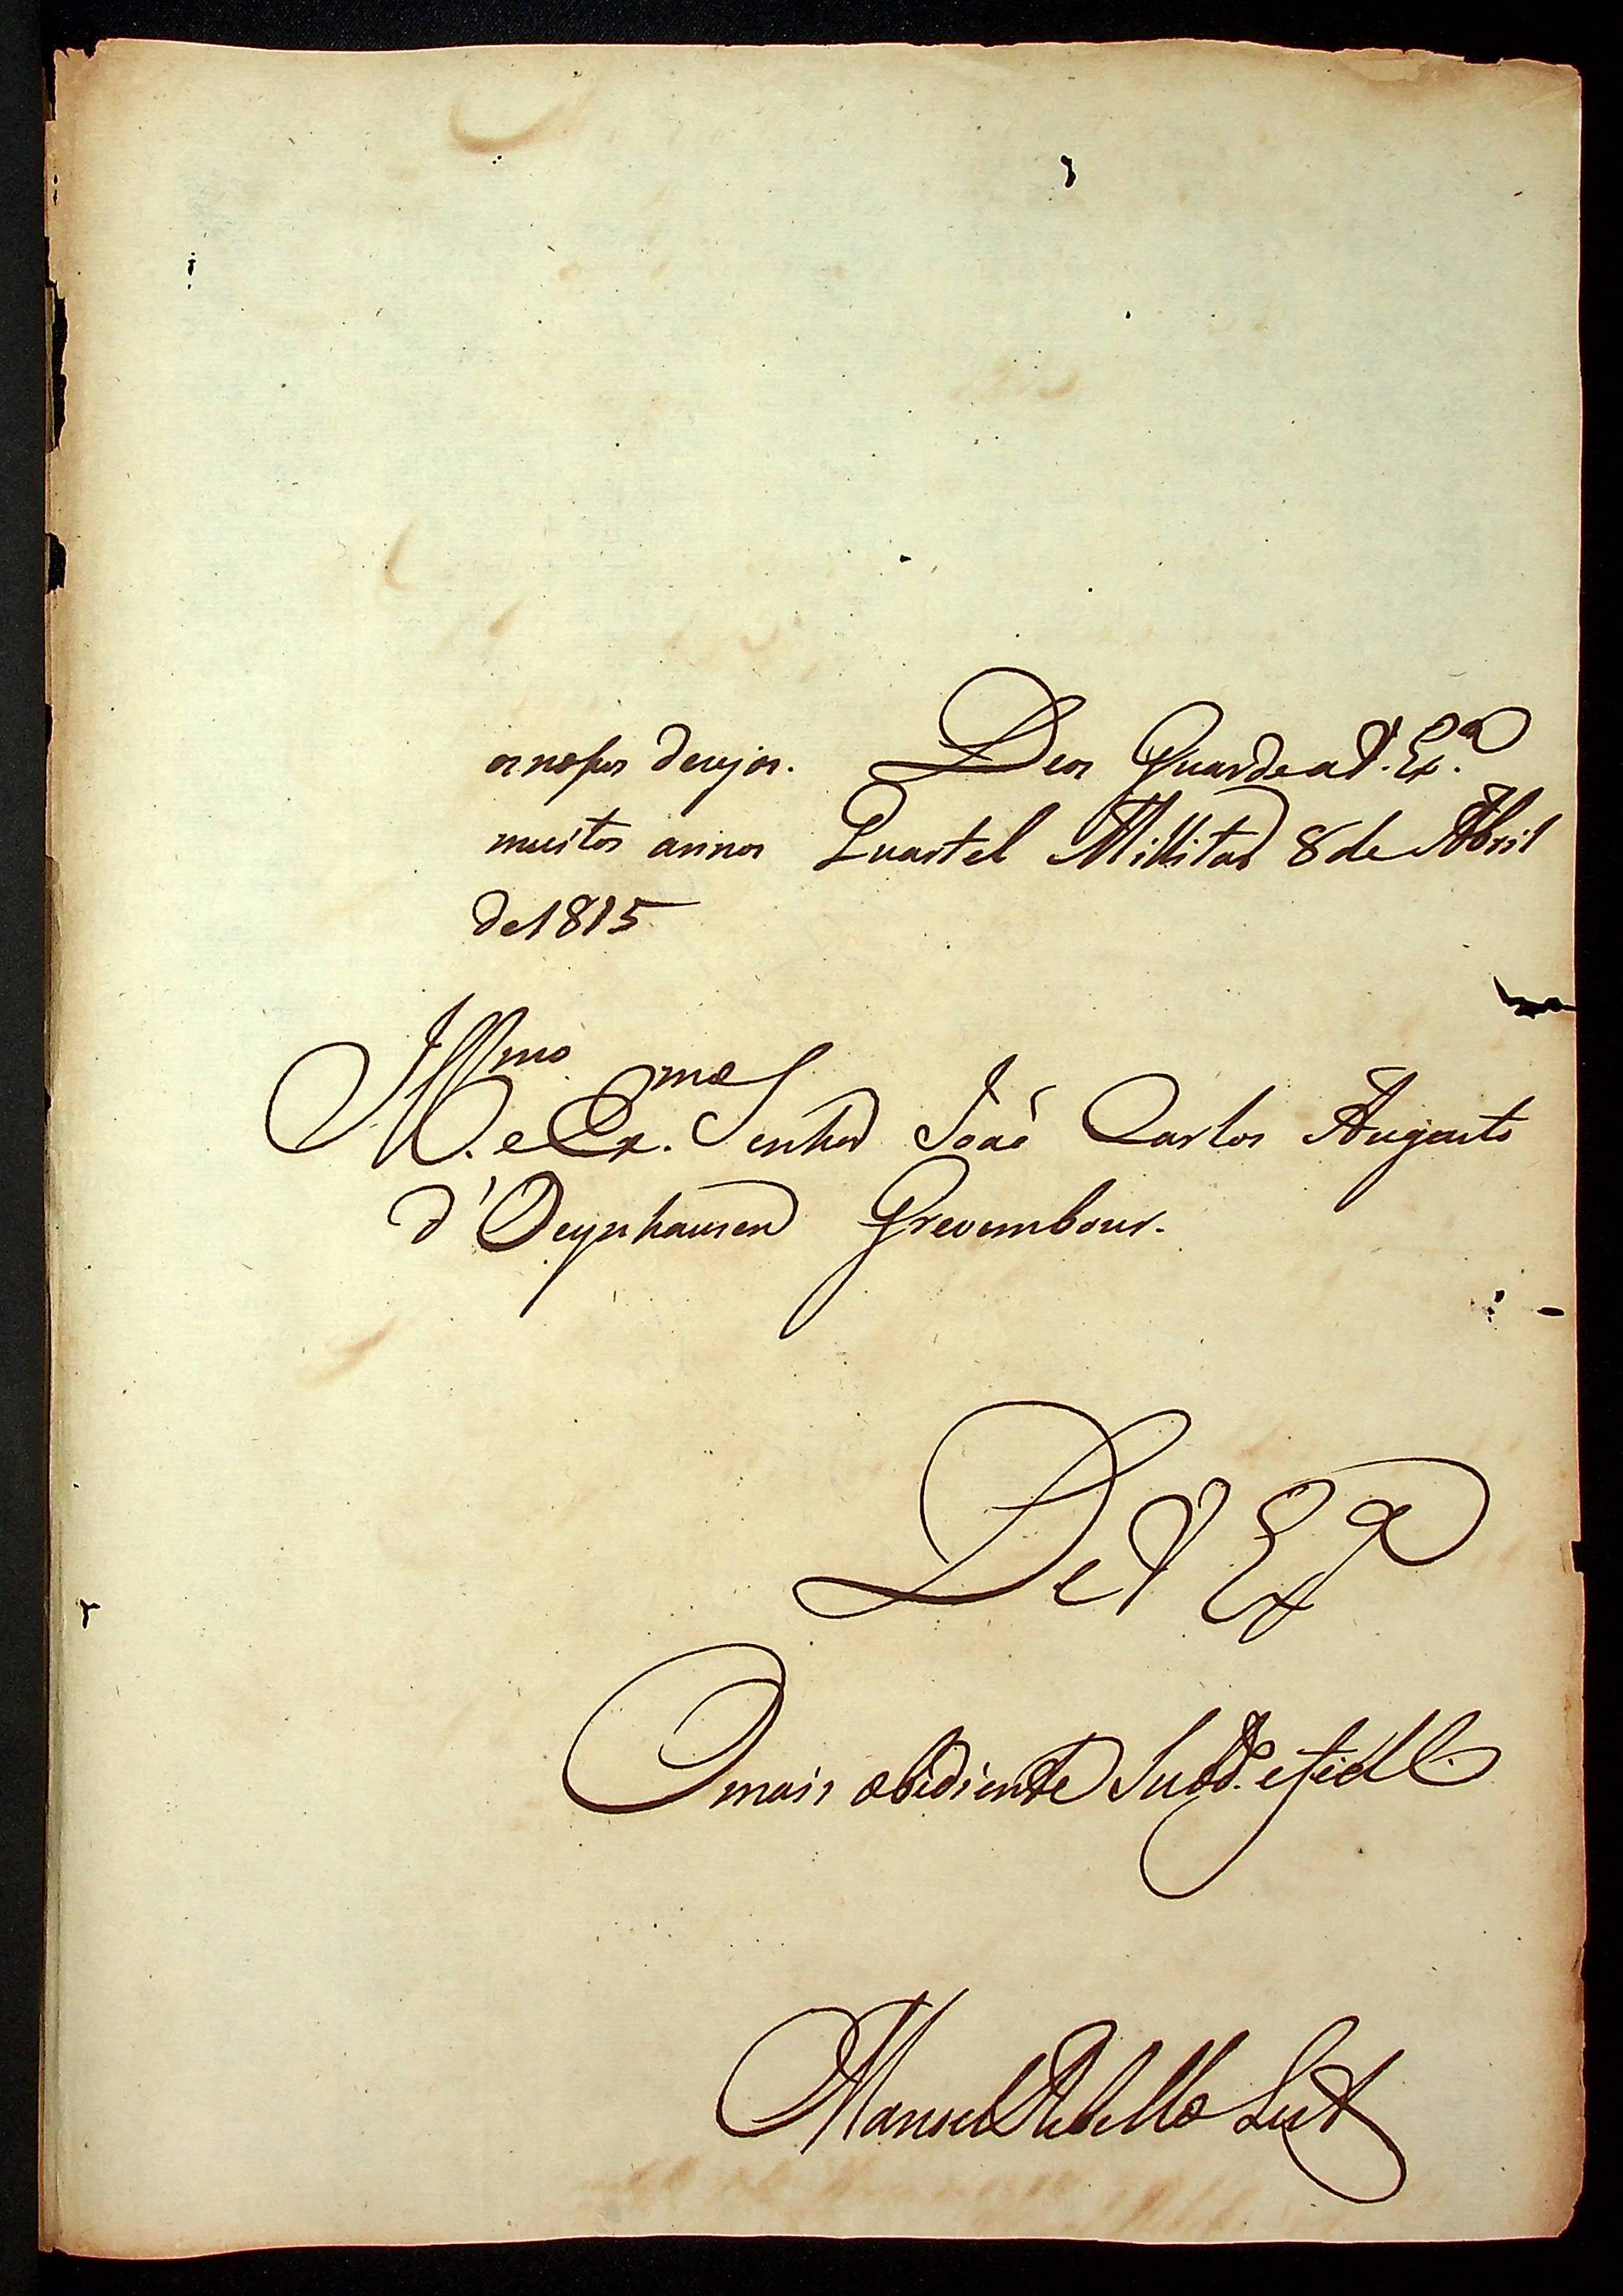 os nossos dezejos. Deos Guarde a V. Ex.ª
muitos annos Quartel Millitar 8 de Abril
de 1815
Ill.mo e Ex.mo Senhor João Carlos Augusto
d'Oeynhausen Grevembour.
De V Exª
O mais obidiente Subd.º e fiel
Manoel Rebello